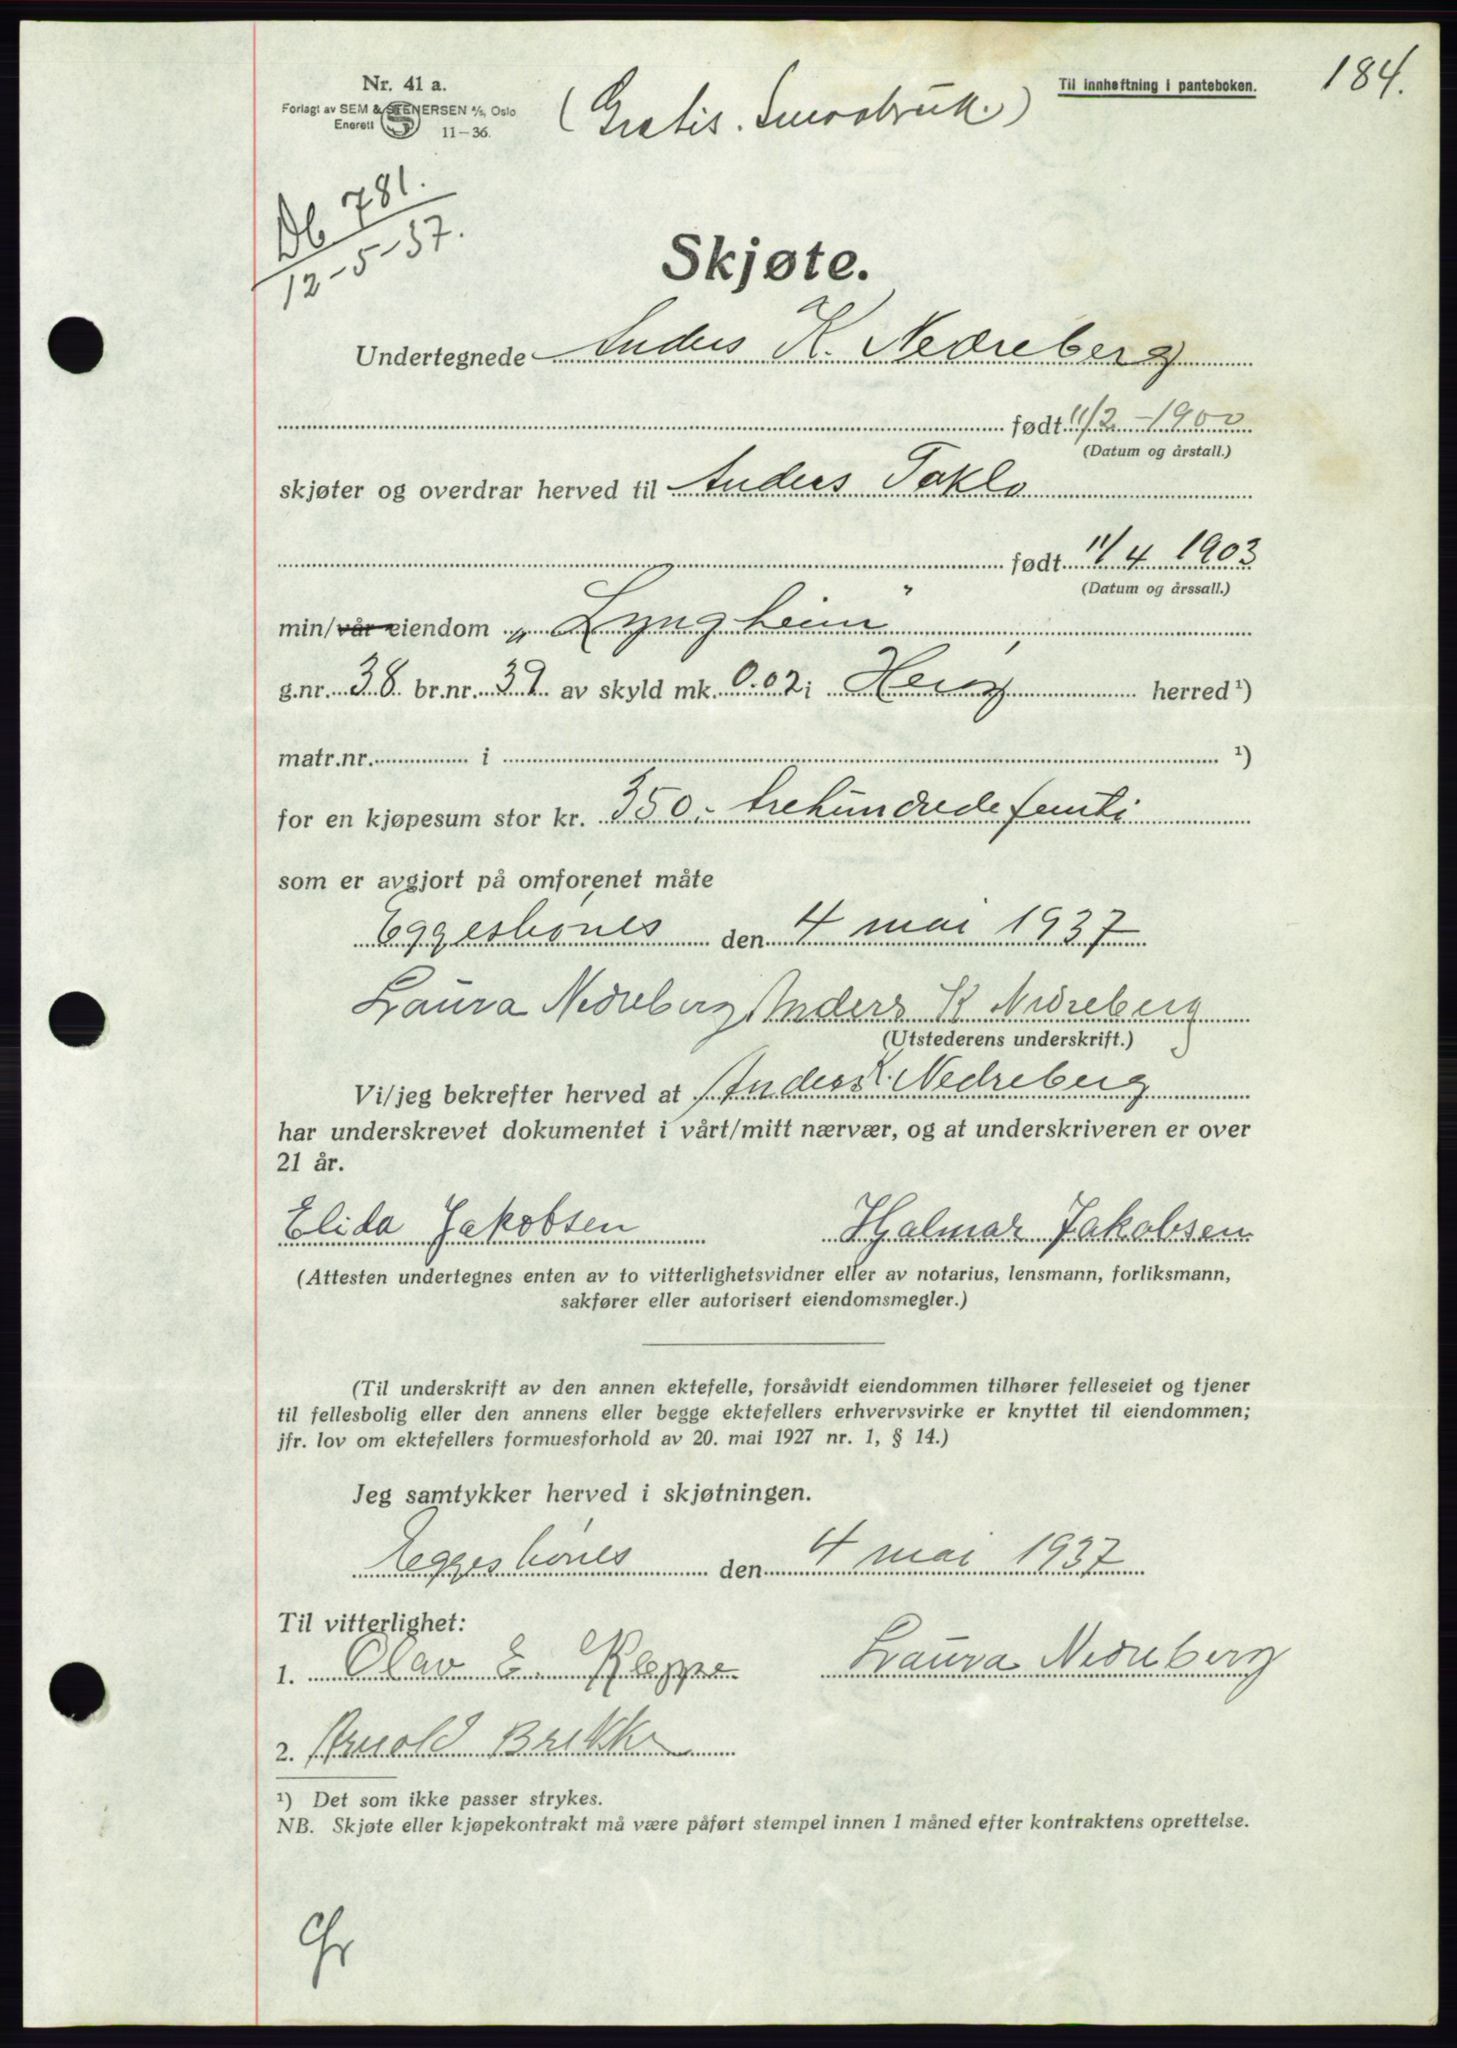 184.
Nr. 41 a.
Forlagt av SEM & STENERSEN A/S, Oslo
Enerett
11—36.
(Gratis. Smaabruk.)
Til innheftning i panteboken.
Db 781.
12-5-37.
Skjøte.
Undertegnede Anders K. Nedreberg
født 11/2-1900
(Datum og årstall.)
skjøter og overdrar herved til Anders Taklo
født 11/4 1903
(Datum og årssall.)
min/vår eiendom „Lyngheim"
g.nr. 38 br.nr. 39 av skyld mk. 0.02 i Herøy herred ¹)
matr.nr. i ¹)
for en kjøpesum stor kr. 350.- trehundredefemti
som er avgjort på omforenet måte
Eggesbønes den 4 mai 1937
Laura Nedreberg Anders K Nedreberg
(Utstederens underskrift.)
Vi/jeg bekrefter herved at Anders K. Nedreberg
har underskrevet dokumentet i vårt/mitt nærvær, og at underskriveren er over
21 år.
Elida Jakobsen Hjalmar Jakobsen
(Attesten undertegnes enten av to vitterlighetsvidner eller av notarius, lensmann, forliksmann,
sakfører eller autorisert eiendomsmegler.)
(Til underskrift av den annen ektefelle, forsåvidt eiendommen tilhører felleseiet og tjener
til fellesbolig eller den annens eller begge ektefellers erhvervsvirke er knyttet til eiendommen;
jfr. lov om ektefellers formuesforhold av 20. mai 1927 nr. 1, § 14.)
Jeg samtykker herved i skjøtningen.
Eggesbønes den 4 mai 1937
Til vitterlighet:
1. Olav E. Kleppe Laura Nedreberg
2. Arnold Brekke
¹) Det som ikke passer strykes.
NB. Skjøte eller kjøpekontrakt må være påført stempel innen 1 måned efter kontraktens oprettelse.